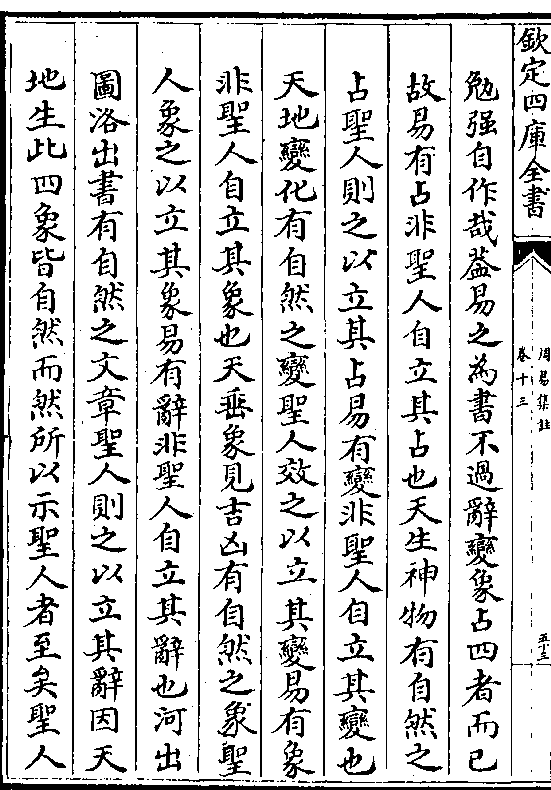 欽定四庫全書
周易集註
卷十三
五十三
勉强自作哉葢易之為書不過辭變象占四者而已
故易有占非聖人自立其占也天生神物有自然之
占聖人則之以立其占易有變非聖人自立其變也
天地變化有自然之變聖人效之以立其變易有象
非聖人自立其象也天垂象見吉凶有自然之象聖
人象之以立其象易有辭非聖人自立其辭也河出
圖洛出書有自然之文章聖人則之以立其辭因天
地生此四象皆自然而然所以示聖人者至矣聖人